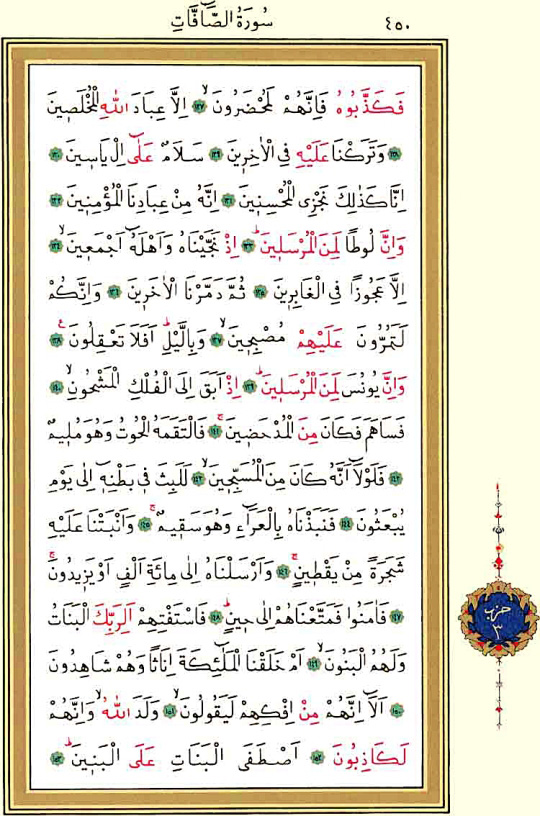 ٤٥٠
سُورَةُ الصَّٓافَّاتِ
فَكَذَّبُوهُ فَاِنَّهُمْ لَمُحْضَرُونَۙ ﴿١٢٧﴾ اِلَّا عِبَادَ اللّٰهِ الْمُخْلَصٖينَ
﴿١٢٨﴾ وَتَرَكْنَا عَلَيْهِ فِي الْاٰخِرٖينَ ﴿١٢٩﴾ سَلَامٌ عَلٰٓى اِلْ يَاسٖينَ ﴿١٣٠﴾
اِنَّا كَذٰلِكَ نَجْزِي الْمُحْسِنٖينَ ﴿١٣١﴾ اِنَّهُ مِنْ عِبَادِنَا الْمُؤْمِنٖينَ ﴿١٣٢﴾
وَاِنَّ لُوطًا لَمِنَ الْمُرْسَلٖينَۜ ﴿١٣٣﴾ اِذْ نَجَّيْنَاهُ وَاَهْلَهُٓ اَجْمَعٖينَۙ ﴿١٣٤﴾
اِلَّا عَجُوزًا فِي الْغَابِرٖينَ ﴿١٣٥﴾ ثُمَّ دَمَّرْنَا الْاٰخَرٖينَ ﴿١٣٦﴾ وَاِنَّكُمْ
لَتَمُرُّونَ عَلَيْهِمْ مُصْبِحٖينَۙ ﴿١٣٧﴾ وَبِالَّيْلِۜ اَفَلَا تَعْقِلُونَ۟ ﴿١٣٨﴾
وَاِنَّ يُونُسَ لَمِنَ الْمُرْسَلٖينَۜ ﴿١٣٩﴾ اِذْ اَبَقَ اِلَى الْفُلْكِ الْمَشْحُونِۙ ﴿١٤٠﴾
فَسَاهَمَ فَكَانَ مِنَ الْمُدْحَضٖينَۚ ﴿١٤١﴾ فَالْتَقَمَهُ الْحُوتُ وَهُوَ مُلٖيمٌ
﴿١٤٢﴾ فَلَوْلَٓا اَنَّهُ كَانَ مِنَ الْمُسَبِّحٖينَۙ ﴿١٤٣﴾ لَلَبِثَ فٖي بَطْنِهٖٓ اِلٰى يَوْمِ
يُبْعَثُونَ ﴿١٤٤﴾ فَنَبَذْنَاهُ بِالْعَرَٓاءِ وَهُوَ سَقٖيمٌۚ ﴿١٤٥﴾ وَاَنْبَتْنَا عَلَيْهِ
شَجَرَةً مِنْ يَقْطٖينٍۚ ﴿١٤٦﴾ وَاَرْسَلْنَاهُ اِلٰى مِائَةِ اَلْفٍ اَوْ يَزٖيدُونَۚ
﴿١٤٧﴾ فَاٰمَنُوا فَمَتَّعْنَاهُمْ اِلٰى حٖينٍۜ ﴿١٤٨﴾ فَاسْتَفْتِهِمْ اَلِرَبِّكَ الْبَنَاتُ
وَلَهُمُ الْبَنُونَۙ ﴿١٤٩﴾ اَمْ خَلَقْنَا الْمَلٰٓئِكَةَ اِنَاثًا وَهُمْ شَاهِدُونَ
﴿١٥٠﴾ اَلَٓا اِنَّهُمْ مِنْ اِفْكِهِمْ لَيَقُولُونَۙ ﴿١٥١﴾ وَلَدَ اللّٰهُۙ وَاِنَّهُمْ
لَكَاذِبُونَ ﴿١٥٢﴾ اَصْطَفَى الْبَنَاتِ عَلَى الْبَنٖينَۜ ﴿١٥٣﴾
حزب
٣